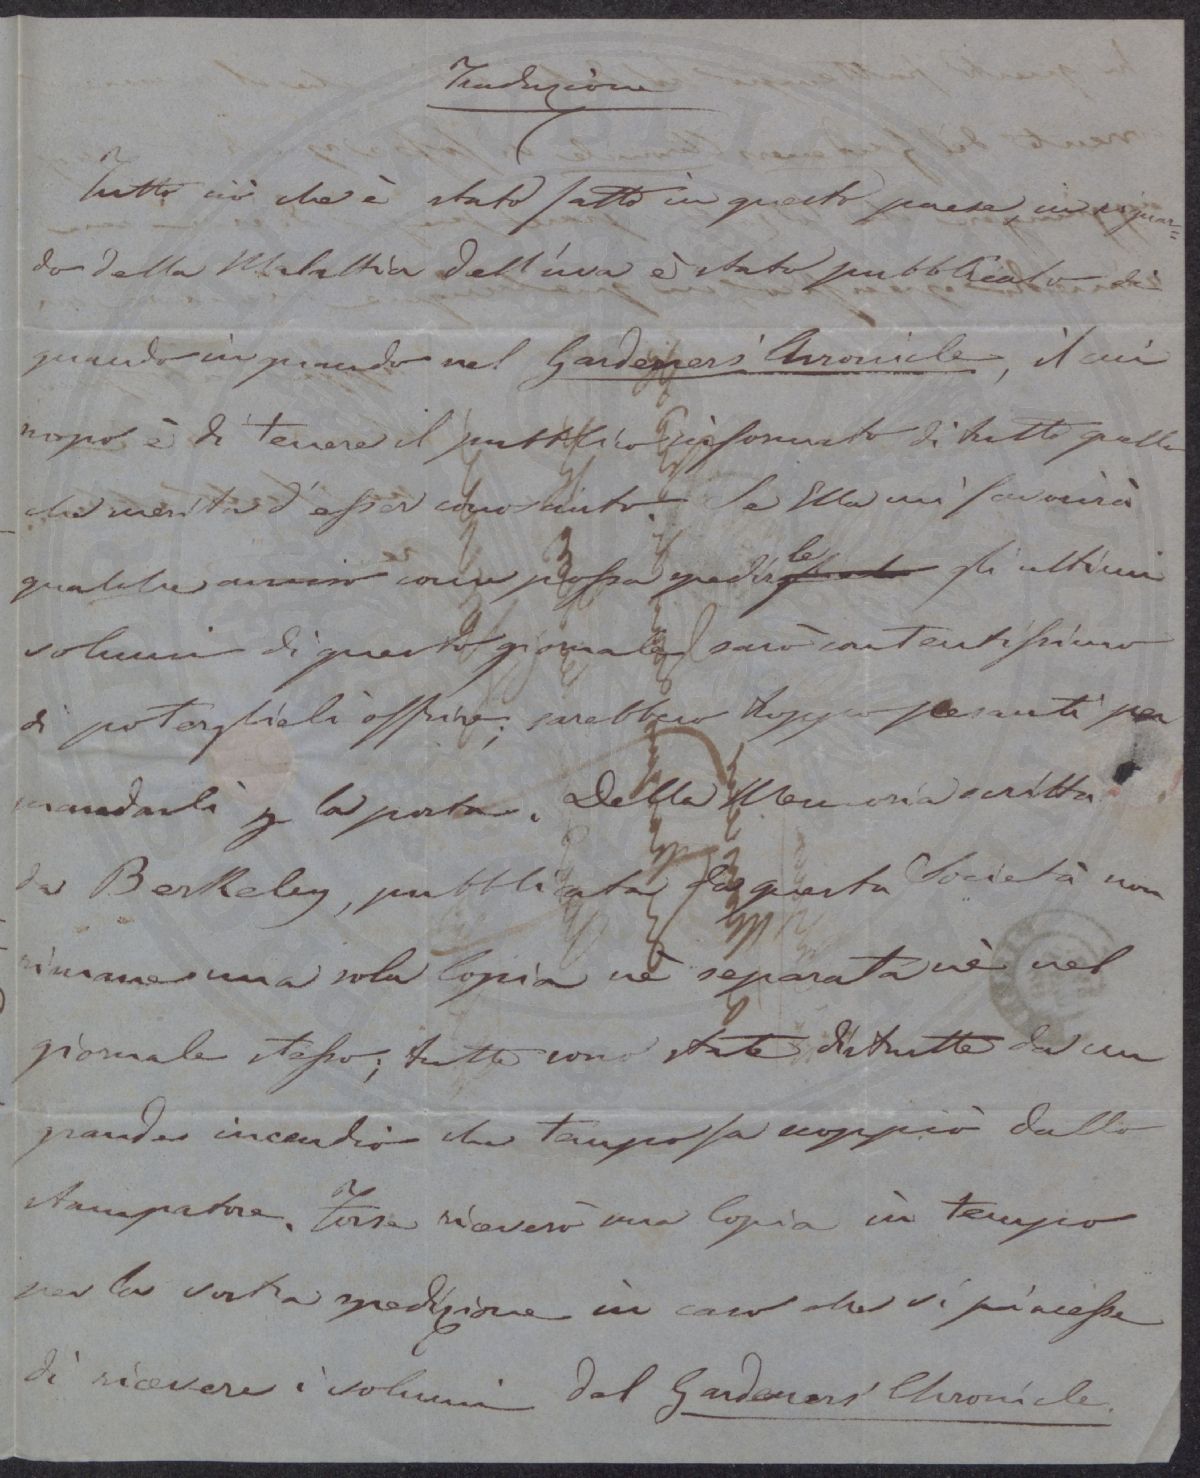 Traduzione
Tutto ciò che è stato fatto in questo paese, in riguar=
do della Malattia dell'uva è stato pubblicato di
quando in quando nel Gardeners' Chronicle, il cui
scopo è di tenere il pubblico informato di tutto quello
che merita d'esser conosciuto. Se Ella mi favorirà
qualche avviso come possa spedirle gli ultimi
volumi di questo giornale sarò contentissimo
di poterglieli offrire; sarebbero troppo pesanti per
mandarli p la posta. Della Memoria scritta
da Berkeley, pubblicata da questa Società non
rimane una sola Copia nè separata nè nel
giornale stesso; tutte sono state distrutte da un
grande incendio che tempo fa scoppiò dallo
stampatore. Forse riceverò una Copia in tempo
per la vostra spedizione in caso che vi piacesse
di ricevere i volumi del Gardeners' Chronicle.